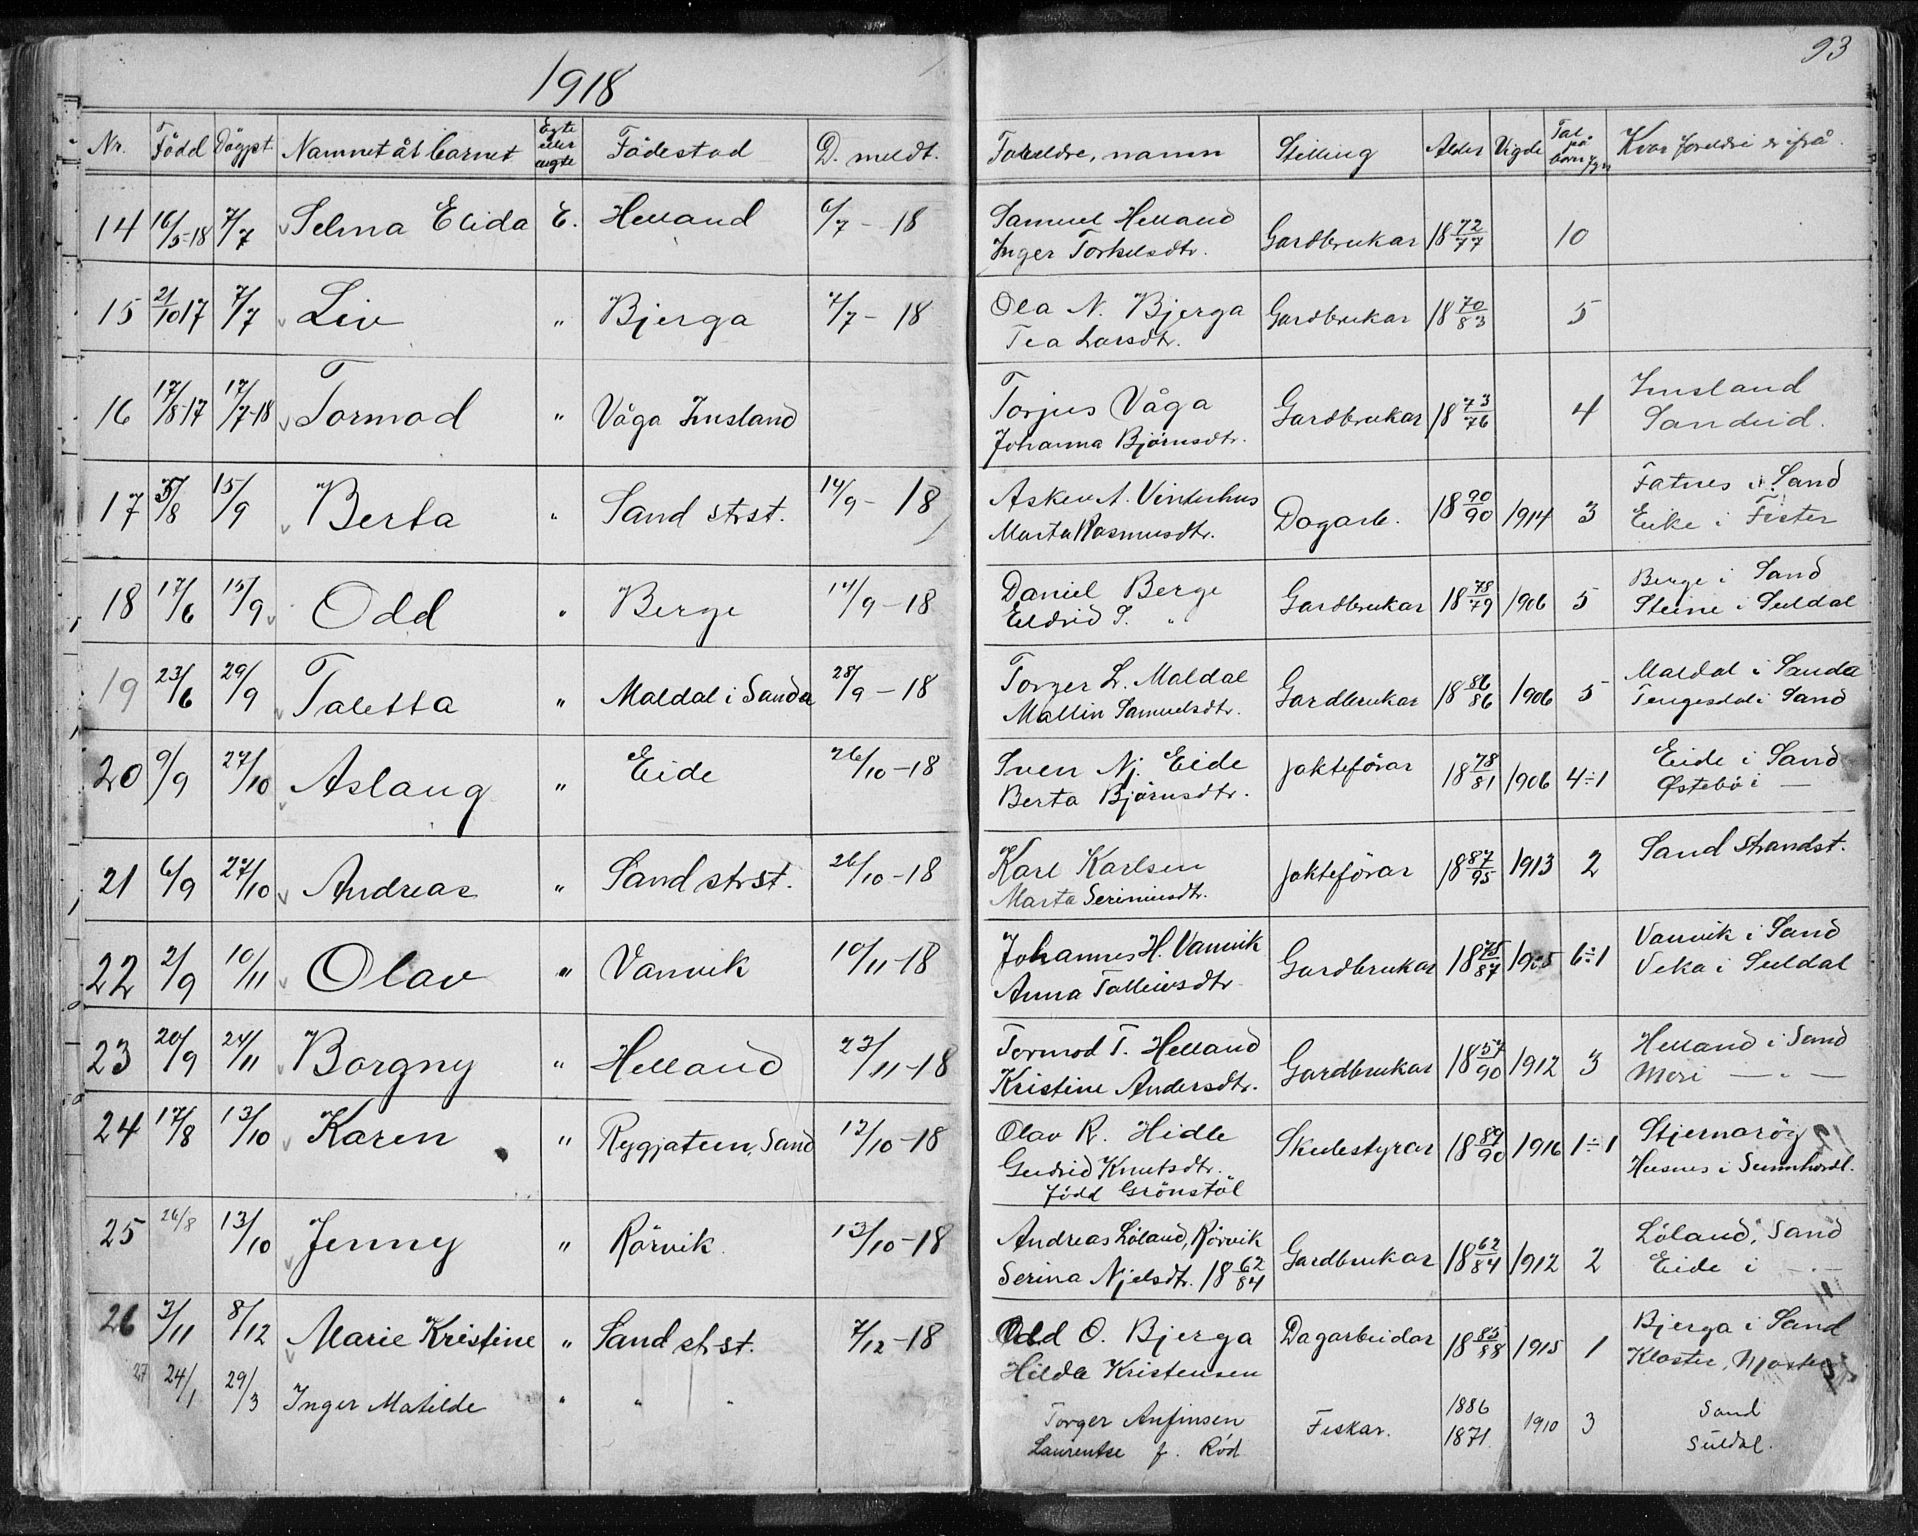 1918
93
Nr. Född Döypt Namnet åt barnet Egte eller uegte Födestad D. meldt. Foreldre, namn Stilling Alder Vigde Tal på born i ygn Kvar foreldri er ifrå.
14 16/5-18 7/7 Selma Elida E. Helland 6/7 - 18 Samuel Helland Gardbrukar 18 72/77 10
Inger Torkelsdtr.
15 21/10 17 7/7 Liv " Bjerga 7/7 - 18 Ola N. Bjerga Gardbrukar 18 70/83 5
Tea Larsdtr.
16 17/8-17 17/7-18 Tormod " Våga Imsland Torjus Våga Gardbrukar 18 73/76 4 Imsland
Johanna Björnsdtr. Sandeid.
17 5/8 15/9 Berta " Sand strst. 14/9 - 18 Asken A. Vinterhus Dagarb. 18 90/90 1914 3 Fatnes i Sand
Marta Rasmusdtr. Eike i Fister
18 17/6 15/9 Odd " Berge 14/9 - 18 Daniel Berge Gardbrukar 18 78/79 1906 5 Berge i Sand
Eldrid S. " Steine i Suldal
19 23/6 29/9 Taletta " Maldal i Sauda 28/9 - 18 Torger L. Maldal Gardbrukar 18 86/86 1906 5 Maldal i Sauda
Mallin Samuelsdtr. Tengesdal i Sand
20 9/9 27/10 Aslaug " Eide 26/10 - 18 Sven Nj. Eide jakteförar 18 78/81 1906 4÷1 Eide i Sand
Berta Björnsdtr. Østebö i —
21 6/9 27/10 Andreas " Sand strst. 26/10 - 18 Karl Karlsen jakteförar 18 87/95 1913 2 Sand strandst.
Marta Seriniusdtr.
22 2/9 10/11 Olav " Vanvik 10/11 - 18 Johannes H. Vanvik Gardbrukar 18 75/87 1905 6÷1 Vanvik i Sand
Anna Talleivsdtr. Veka i Suldal
23 20/9 24/11 Borgny " Helland 23/11 - 18 Tormod T. Helland Gardbrukar 18 57/90 1912 3 Helland i Sand
Kristine Andersdtr. Møri — " —
24 17/8 13/10 Karen " Rygjatun, Sand 12/10 - 18 Olav R. Hidle Skulestyrar 18 89/90 1916 1÷1 Stjernaröy
Gudrid Knutsdtr. Husnes i Sunnhordl.
född Grönstöl
25 26/8 13/10 Jenny " Rörvik. 13/10 - 18 Andreas Löland, Rörvik Gardbrukar 18 62/84 1912 2 Löland, Sand
Serina Njelsdtr. 18 62/84 Eide i — " —
26 3/11 8/12 Marie Kristine " Sand strst. 7/12 - 18 Odd O. Bjerga Dagarbeidar 18 85/88 1915 1 Bjerga i Sand
Hilda Kristensen Kloster, Moster
27 24/1 29/3 Inger Matilde " " " Torger Anfinsen Fiskar. 1886 1910 3 Sand
Laurentse f. Rød 1871 Suldal.